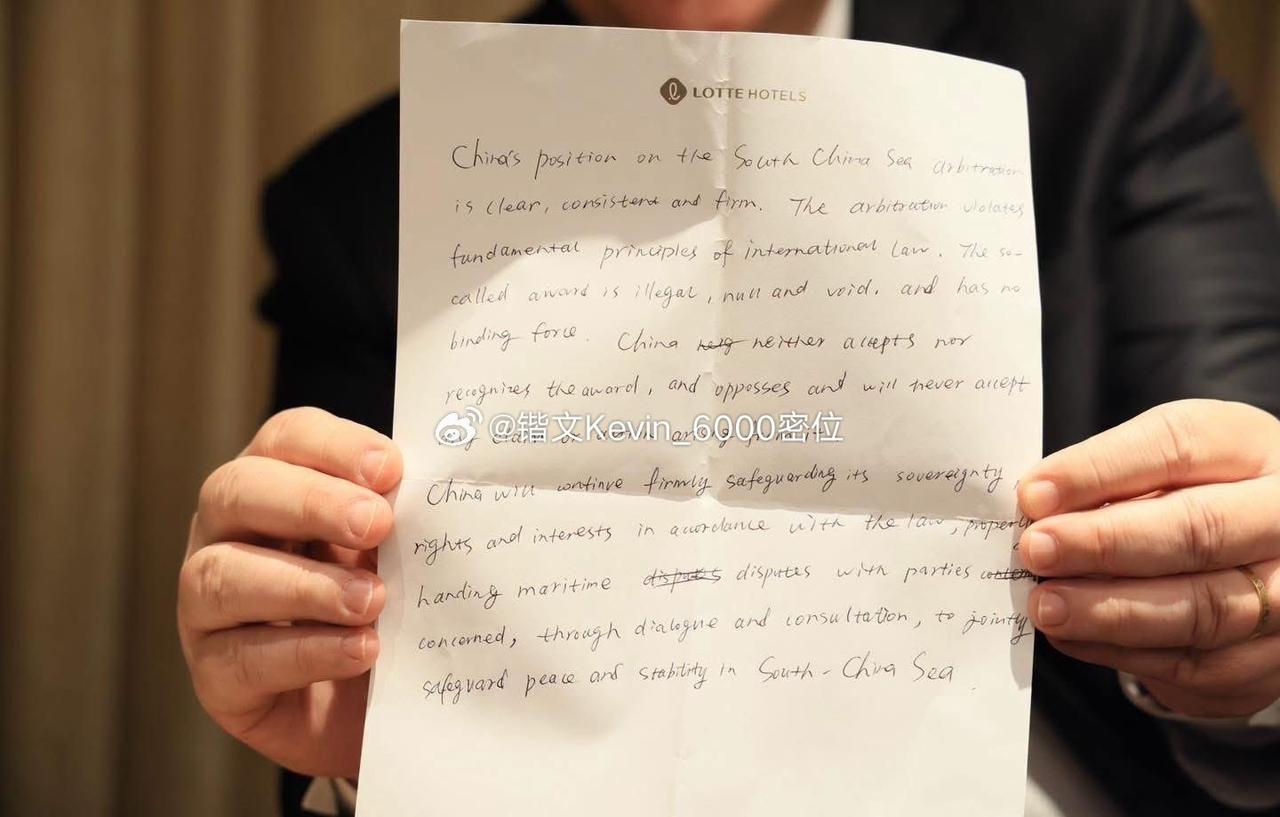 LOTTE HOTELS
China's position on the South China Sea arbitration
is clear, consistent and firm. The arbitration violates
fundamental principles of international law. The so-
called award is illegal, null and void. and has no
binding force. China neither accepts nor
recognizes the award, and opposses and will never accept
any claim or action arising from it.
@锴文Kevin_6000密位
China will continue firmly safeguarding its sovereignty,
rights and interests in accordance with the law, properly
handing maritime disputes disputes with parties
concerned, through dialogue and consultation, to jointly
safeguard peace and stability in South-China Sea.